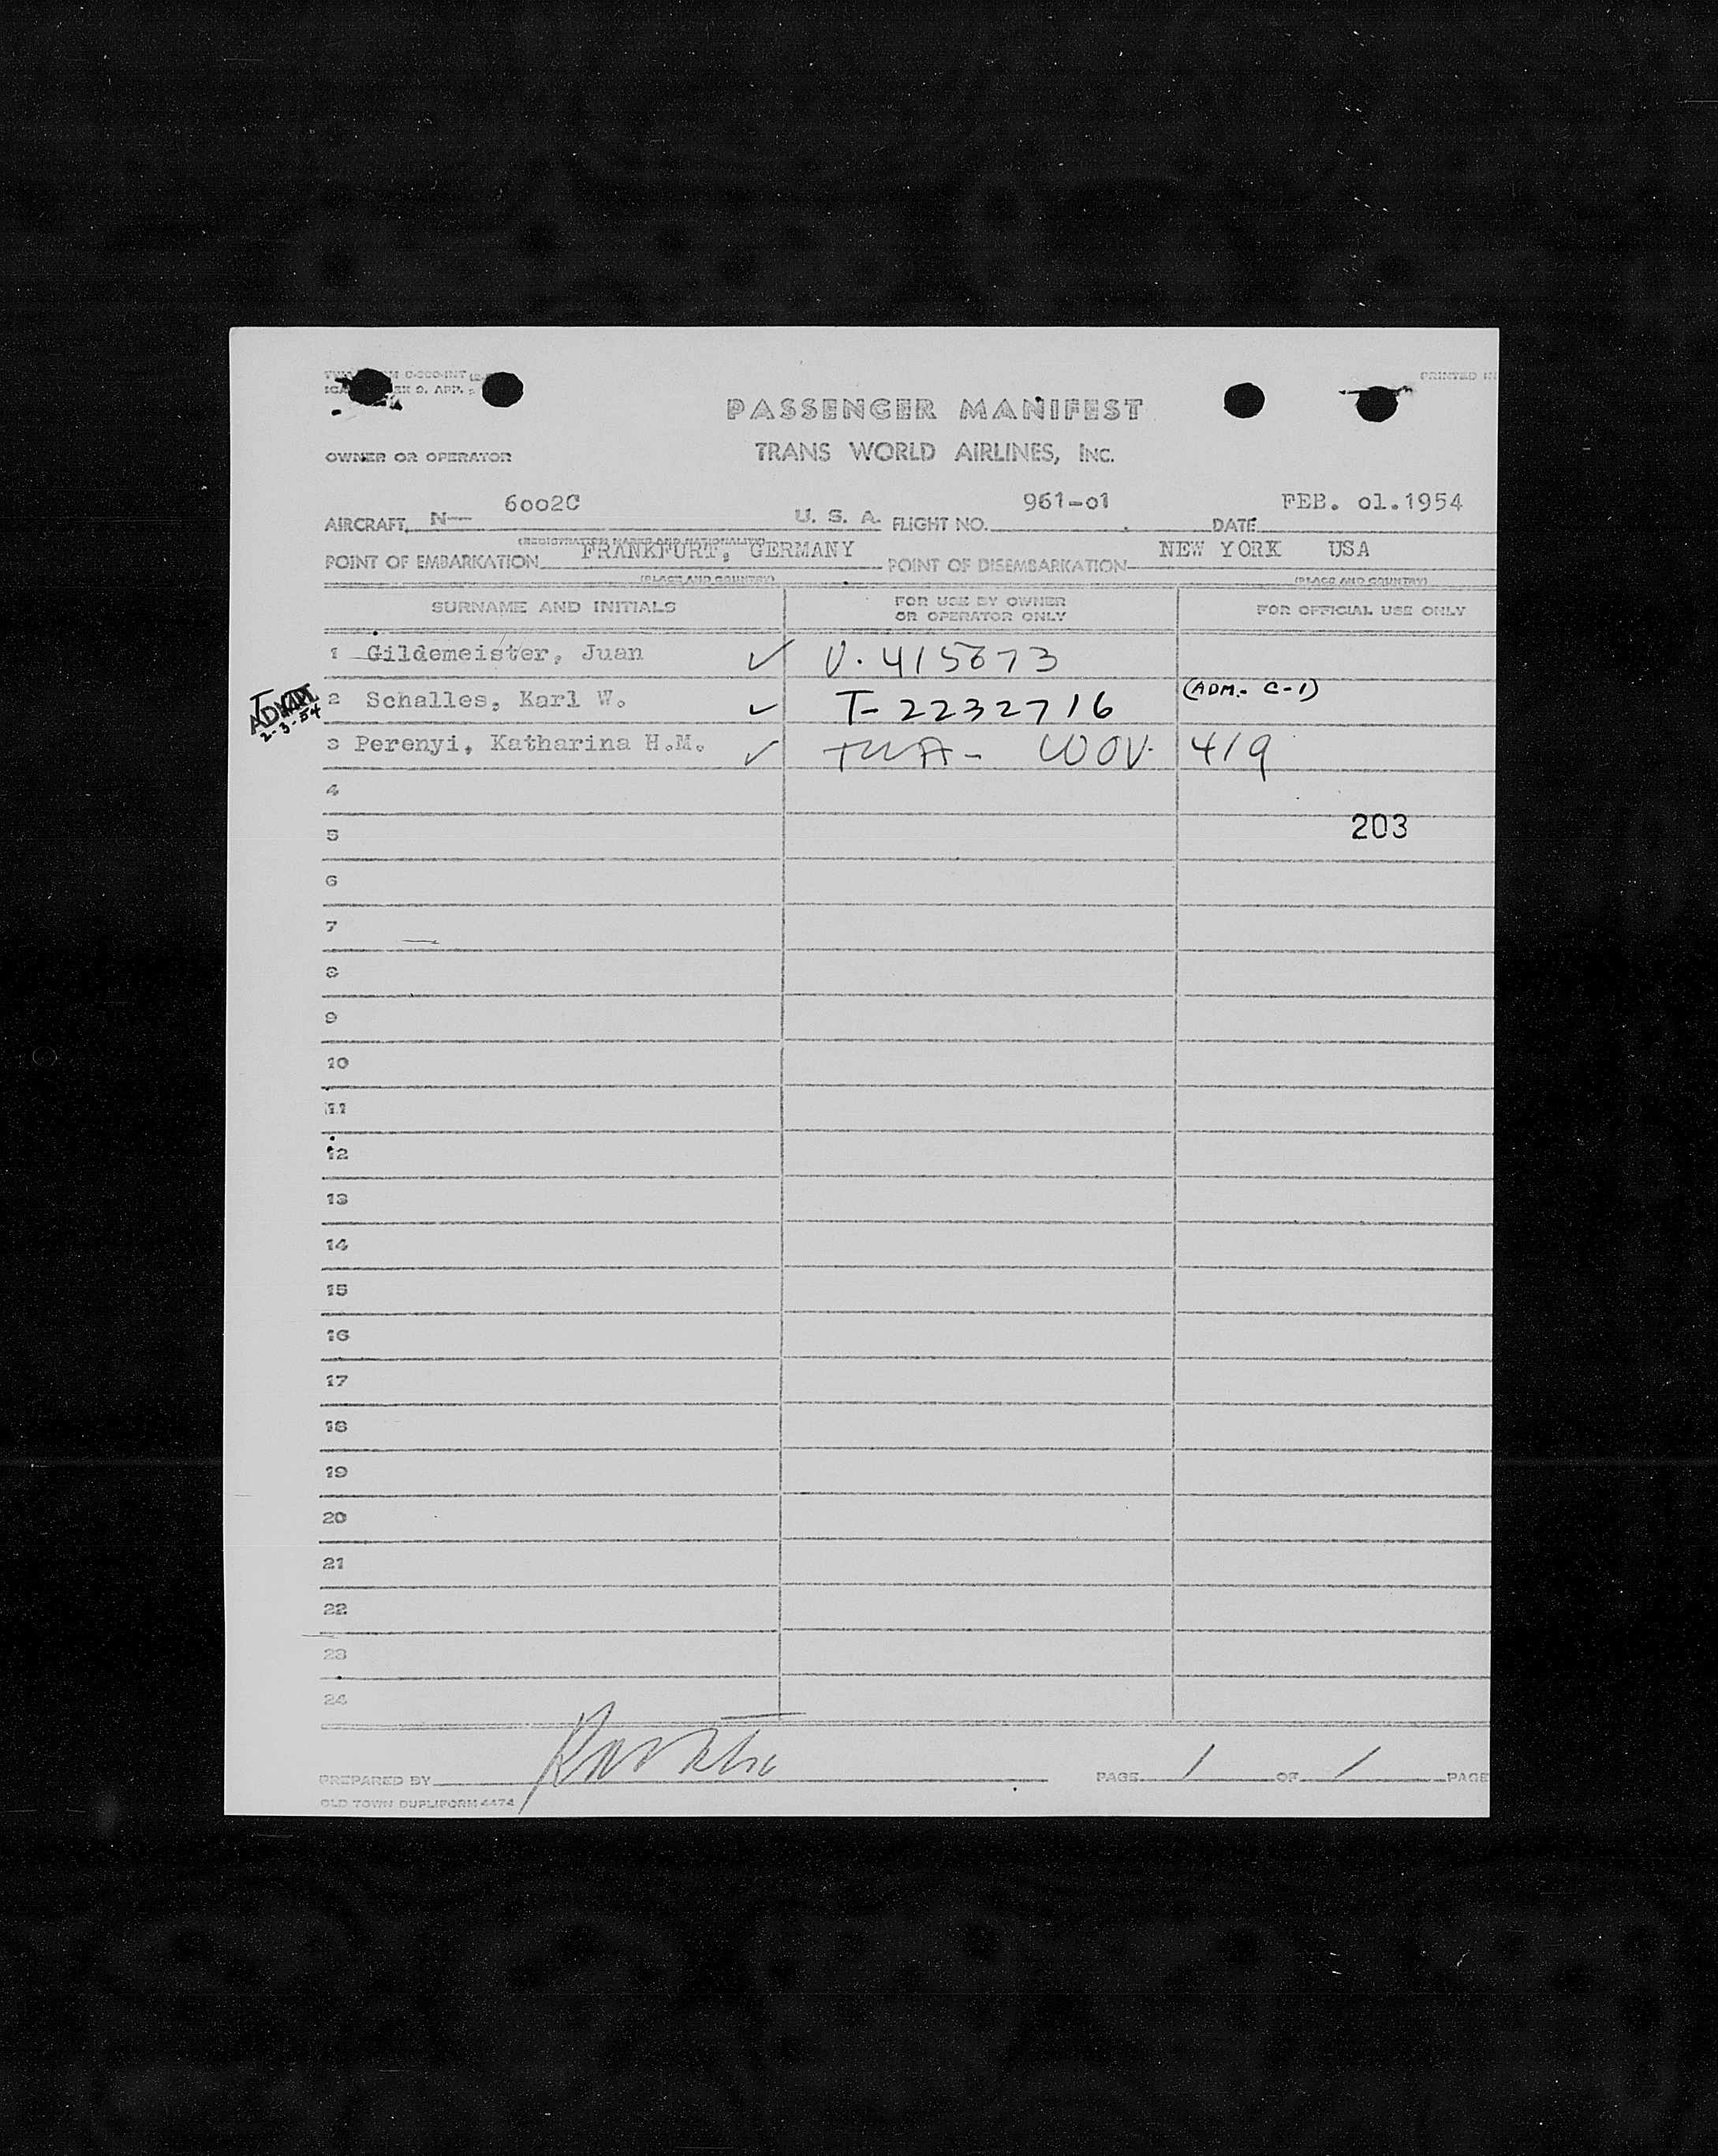 PRINTED IN
PASSENGER MANIFEST
OWNER OR OPERATOR TRANS WORLD AIRLINES, INC.
AIRCRAFT, N— 6002C U. S. A. FLIGHT NO. 961-01 DATE FEB. 01.1954
(REGISTRATION MARKS AND NATIONALITY)
POINT OF EMBARKATION FRANKFURT, GERMANY POINT OF DISEMBARKATION NEW YORK USA
(PLACE AND COUNTRY) (PLACE AND COUNTRY)
SURNAME AND INITIALS FOR USE BY OWNER OR OPERATOR ONLY FOR OFFICIAL USE ONLY
1 Gildemeister, Juan ✓ V. 415673
2 Schalles, Karl W. ✓ T-2232716 (ADM.- C-1)
2-3-54
3 Perenyi, Katharina H.M. ✓ TWA- WOV. 419
4
203
5
6
7
8
9
10
11
12
13
14
15
16
17
18
19
20
21
22
23
24
PREPARED BY PAGE 1 OF 1 PAGE
OLD TOWN DUPLIFORM 4474